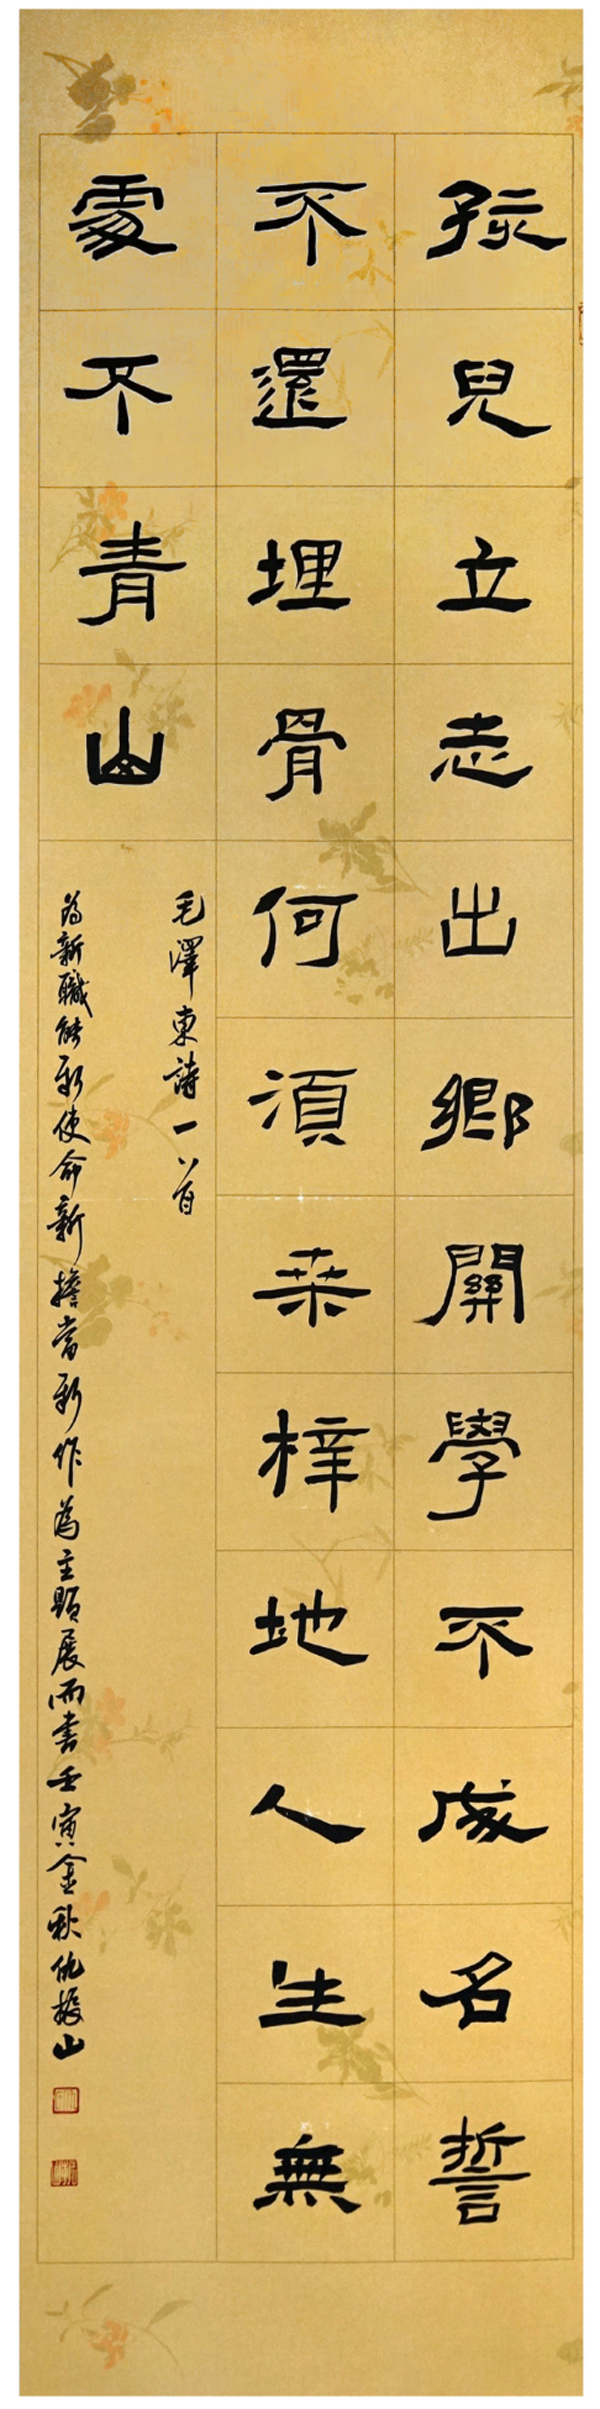 孩兒立志出鄉關學不成名誓
不還埋骨何須桑梓地人生無
處不青山
毛澤東詩一首
為新職能新使命新擔當新作為主題展而書壬寅金秋仇振山